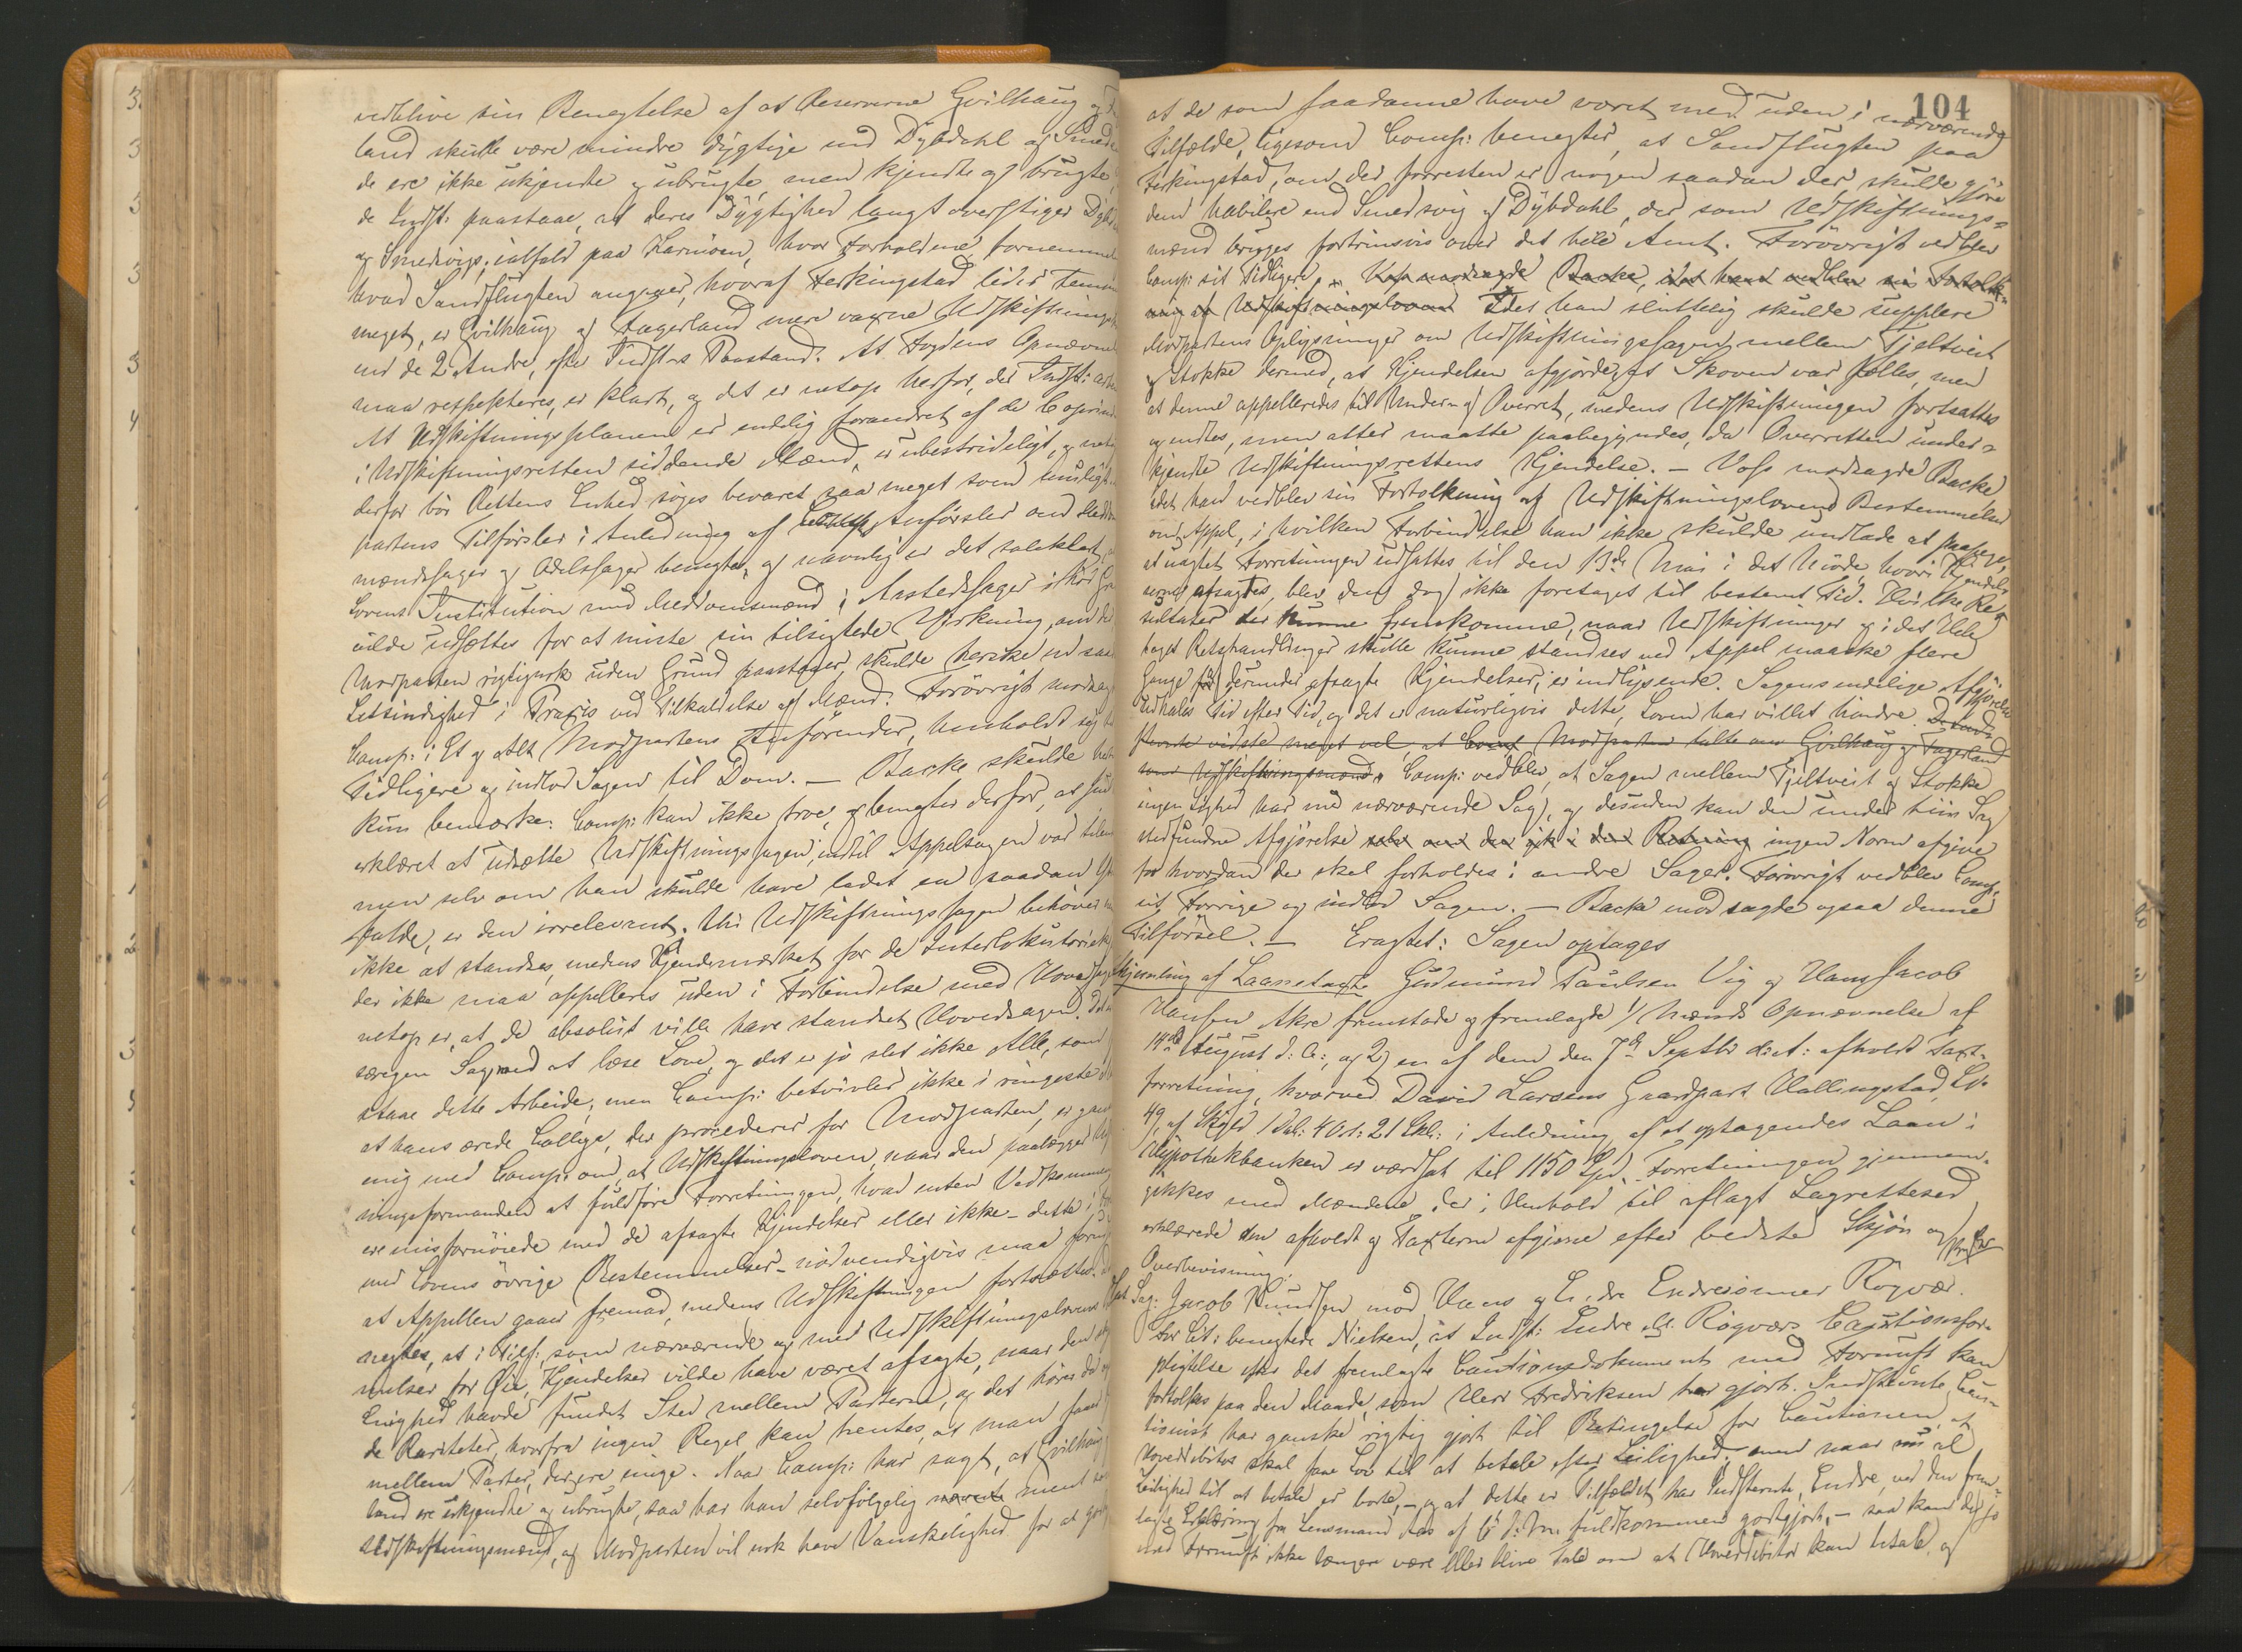 vedblive sin Benegtelse af at Reserverne Gvilhaug og
land skulle være mindre dygtige end Dybdahl og Smeds
de ere ikke ukjendte og ubrugte, men kjendte og brugte,
de Indst: paastaae, at deres Dygtighed langt overstiger
og Smedsvigs, ialfald paa Karmøen, hvor Forholdene fornemme
hvad Sandflugten angaaer, hvoraf Ferkingstad lider
meget, er Gvilhaug og Fagerland mere vaxne Udskiftnings
end de 2 Andre, efter Indst.s Paastand. At Fogdens Opnævnelse
maa respekteres, er klart, og det er netop herfor, der Indst:
At Udskiftningsplanen er endelig forandret af de
i Udskiftningsretten siddende Mænd, er ubestrideligt, og
derfor bør Rettens Enhed søges bevaret saa meget som muligt.
partens Tilførsler i Anledning af Anførsler om
mændssager og Odelssager benegtes, og navnlig er det soleklart,
Lovens Institution med Meddomsmænd i Aastedssager
vilde udsættes for at miste sin tilsigtede Virkning, om der
Modparten rigtignok uden Grund paastaaer, skulde herske en saadan
Letsindighed i Praxis ved Tilkaldelse af Mænd. Forøvrigt modsagde
Comp: i Et og Alt Modpartens Anførender, henholdt sig til
Tidligere og indlod Sagen til Dom. — Backe skulde
kun bemærke: Comp: kan ikke troe, og benegter derfor, at
erklæret at udsætte Udskiftningssagen, indtil Appelsagen var
men selv om han skulde have ladet en saadan
falde, er den irrelevant. Thi Udskiftningssagen behøver
ikke at standses, medens Kjendemærket for de Interlokutorier,
der ikke maa appelleres uden i Forbindelse med Hovedsagen
netop er, at de absolut ville have standset Hovedsagen.
særegen Sag med at læse Love, og det er jo slet ikke Alle, som
staae dette Arbeide, men Comp: betvivler ikke i ringeste
at hans ærede Collega, der procederer for Modparten, er
enig med Comp: om, at Udskiftningsloven, naar den paalægger
ningsformanden at fuldføre Forretningen, hvad enten Vedkommende
ere misfornøiede med de afsagte Kjendelser eller ikke – dette i
med Lovens øvrige Bestemmelser – nødvendigvis maa
at Appellen gaaer fremad, medens Udskiftningen fortsættes.
negtes, at i Tilf: som nærværende og med Udskiftningslovens
melser for Øie, Kjendelser vilde have været afsagte, naar den
Enighed havde fundet Sted mellem Parterne, og det hører
de Rariteter, hvorfra ingen Regel kan hentes, at man
mellem Parter, der ere enige. Naar Comp: har sagt, at Gvilhaug
land ere ukjendte og ubrugte, saa har han selvfølgelig ment
Udskiftningsmænd, og Modparten vil nok have Vanskelighed for at
104
at de som saadanne have været med uden i nærværende
Tilfælde, ligesom Comp: benegter, at Sandflugten paa
Ferkingstad, om der forresten er nogen saadan der, skulde gjøre
dem habilere end Smedsvig og Dybdahl, der som Udskiftnings-
mænd bruges fortrinsvis over det hele Amt. Forøvrigt vedblev
Comp: sit Tidligere, Voss modsagde Backe, idet han vedblev sin Fortolk-
ning af Udskiftningsloven Idet han sluttelig skulde supplere
Modpartens Oplysninger om Udskiftningssagen mellem Tjeltveit
og Stokke dermed, at Kjendelsen afgjorde, at Skoven var fælles, men
at denne appelleredes til Under- og Overret, medens Udskiftningen fortsattes
og endtes, men atter maatte paabegyndes, da Overretten under-
kjendte Udskiftningsrettens Kjendelse. — Voss modsagde Backe,
idet han vedblev sin Fortolkning af Udskiftningslovens Bestemmelser
om Appel, i hvilken Forbindelse han ikke skulde undlade at paapege,
at uagtet Forretningen udsattes til den 13de Mai i det Møde, hvori Kjendel-
serne afsagdes, blev den dog ikke foretaget til bestemt Tid. Hvilke Re-
sultater der kunne fremkomme, naar Udskiftninger og i det Hele
taget Retshandlinger skulle kunne standses ved Appel maaske flere
Gange for derunder afsagte Kjendelser, er indlysende. Sagens endelige Afgjørelse
udhales Tid efter Tid, og det er naturligvis dette, Loven har villet hindre.
vidste meget vel, at Modparten talte om Gvilhaug og Fagerland
som Udskiftningsmænd. Comp: vedblev, at Sagen mellem Tjeltveit og Stokke
ingen Lighed har med nærværende Sag, og desuden kan den under hiin Sag
stedfundne Afgjørelse selv om den gik i den Retning ingen Norm afgive
for hvordan der skal forholdes i andre Sager. Forøvrigt vedblev Comp:
sit Forrige og indlod Sagen. — Backe modsagde ogsaa denne
Tilførsel. — Eragtet: Sagen optages
Hjemling af Laanetaxt. Gudmund Paulsen Vig og Hans Jacob
Hansen Akre fremstode og fremlagde 1/ Mænds Opnævnelse af
14de August d: A:, og 2) en af dem den 7de Septbr d: A: afholdt Taxt-
forretning, hvorved David Larsens Gaardpart Hallingstad, L.
49, af Skyld 1 Dal: 4 Ort: 21 Skl: i Anledning af et optagendes Laan i
Hypothekbanken er værdsat til 1150 Spd. Forretningen gjennem-
gikkes med Mændene, der i Henhold til aflagt Lagrettesed
erklærede den afholdt og Taxterne afgivne efter bedste Skjøn og
Overbevisning.
Sag: Jacob Knudsen mod Hans og Endre Endresønner Røgvær.
For Cit: benegtede Nielsen, at Indst: Endre Røgværs Cautionsfor-
pligtelse efter det fremlagte Cautionsdokument med Fornuft kan
fortolkes paa den Maade, som Herr Fredriksen har gjort. Indstevnte Cau-
tionist har ganske rigtig gjort til Betingelse for Cautionen, at
Hoveddebitor skal faae Lov til at betale efter Leilighed, men naar al
Leilighed til at betale er borte, – og at dette er Tilfældet har Indstevnte, Endre, ved den frem-
lagte Erklæring fra Lensmand Aas af 6 d: M: fuldkommen godtgjort, – saa kan der jo
med Fornuft ikke længere være eller blive Tale om at Hoveddebitor kan betale, og